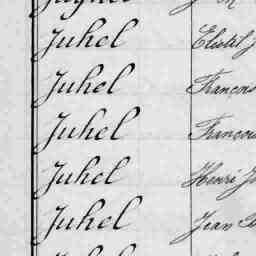 Juhel
Juhel François
Juhel François
Juhel Henri
Juhel Jean